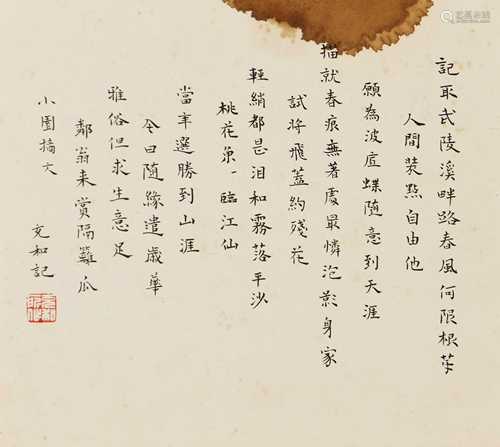 記取武陵溪畔路春風何限根芽
人間裝點自由他
願為波底蝶隨意到天涯
描就春痕無著處最憐泡影身家
試將飛蓋約殘花
輕綃都是淚和霧落平沙
桃花魚 臨江仙
當年選勝到山涯
今日隨緣遣歲華
雅俗但求生意足
鄰翁來賞隔籬瓜
小園摘大
充和記